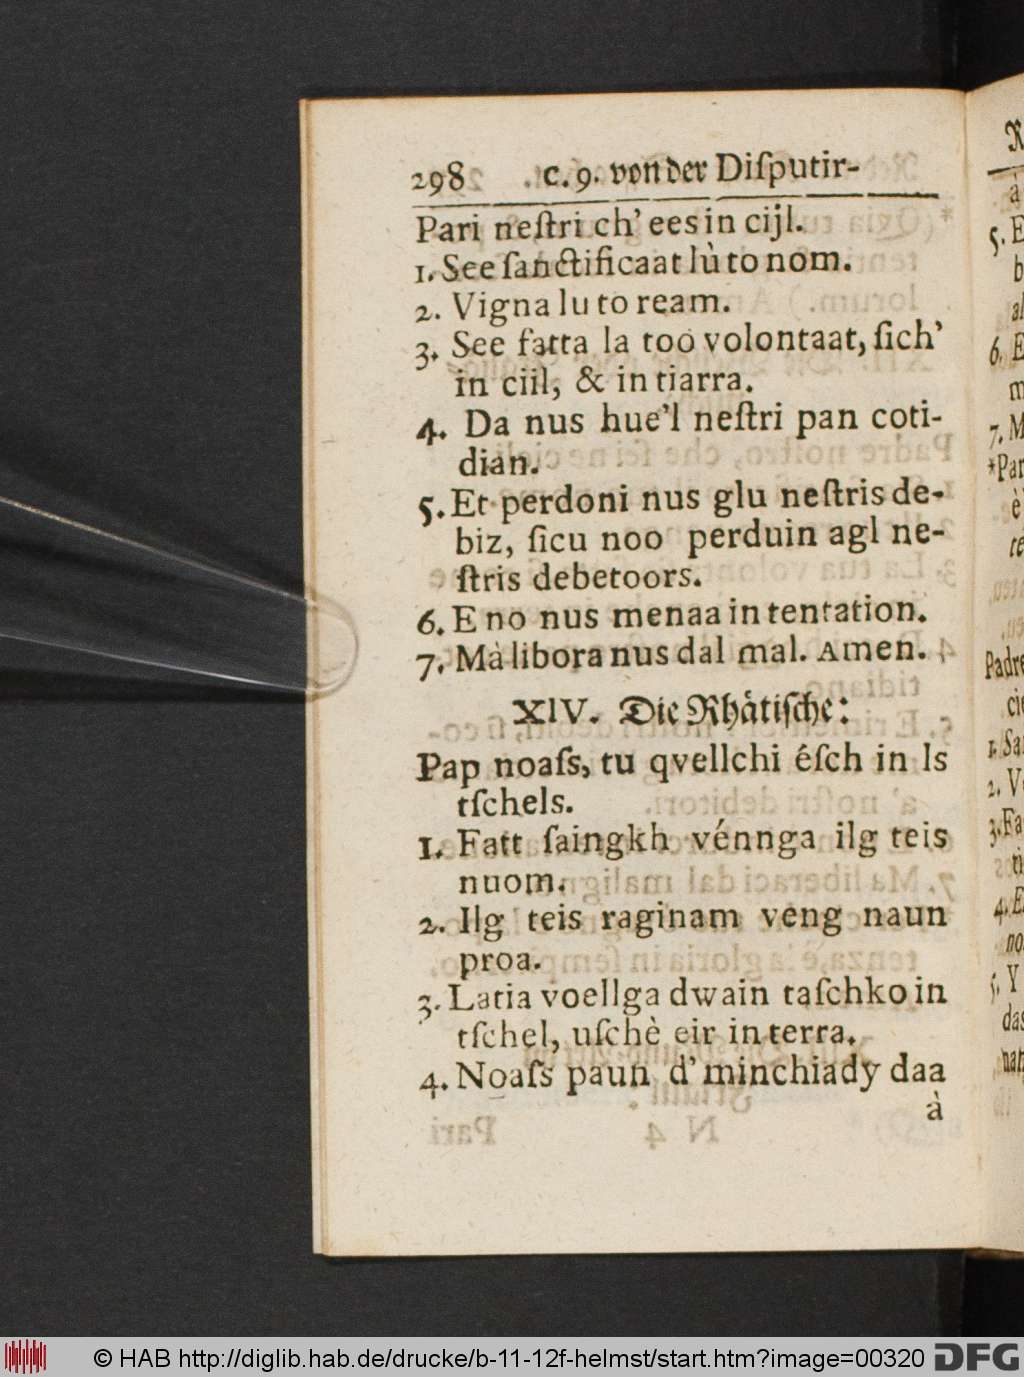 298 c. 9. von der Diſputir-
Pari neſtri ch' ees in cijl.
1. See ſanctificaat lù to nom.
2. Vigna lu to ream.
3. See fatta la too volontaat, ſich'
in ciil, & in tiarra.
4. Da nus hue'l neſtri pan coti-
dian.
5. Et perdoni nus glu neſtris de-
biz, ſicu noo perduin agl ne-
ſtris debetoors.
6. E no nus menaa in tentation.
7. Mà libora nus dal mal. Amen.
XIV. Die Rhätiſche:
Pap noaſs, tu qvellchi éſch in ls
tſchels.
1. Fatt ſaingkh vénnga ilg teis
nuom.
2. Ilg teis raginam veng naun
proa.
3. Latia voellga dwain taſchko in
tſchel, uſchè eir in terra.
4. Noaſs paun d' minchiady daa
à
© HAB http://diglib.hab.de/drucke/b-11-12f-helmst/start.htm?image=00320 DFG